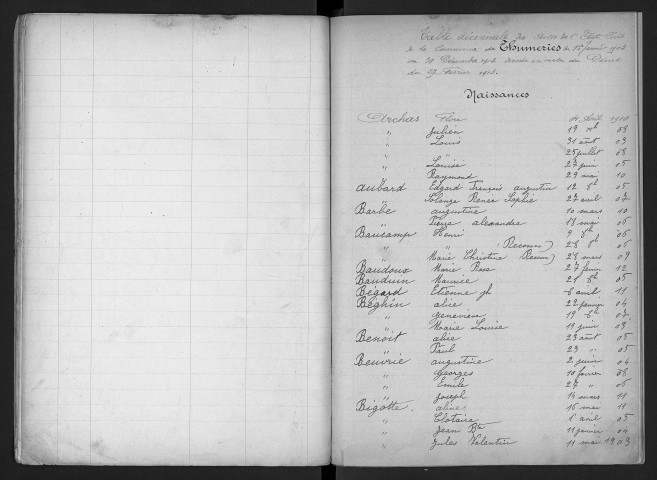 Table décennale des Actes de l'Etat Civil
de la Commune de Thumeries du 1er janvier 1903
au 31 Décembre 1912 dressée en vertu du Décret
du 29 Février 1903.
Naissances
Archas Flore 04 Août 1910
" Julien 19 08
" Louis 31 août 03
" " 25 juillet 08
" Louise 27 juin 05
" Raymond 29 mai 10
Aubard Edgard François augustin 12 05
" Solange Renée Sophie 27 avril 07
Barbe augustine 10 mars 10
" Pierre alexandre 18 mai 06
Baucamp Henri 9 05
" " (Reconn) 28 06
" Marie Christine (Reconn) 28 mars 09
Baudoux Marie Rosa 27 février 12
Bauduin Maurice 21 05
Bégard Etienne jh 8 avril 11
Béghin alice 22 février 04
" Geneviève 19 07
" Marie Louise 11 juin 03
Benoit alice 23 août 05
" Paul 23 " 05
Beuvrie augustine 2 juin 04
" Georges 10 février 08
" Emile 27 " 06
" Joseph 14 mars 11
Bigotte aline 16 mai 11
" Clotaire 6 avril 05
" Jean Bte 11 janvier 04
" Jules Valentin 11 mai 1903